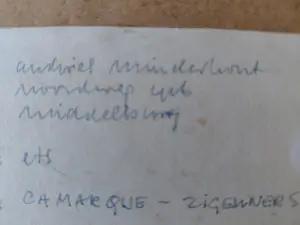 andries minderhout
noordweg 496
middelburg
ets
CAMARQUE – ZIGEUNERS